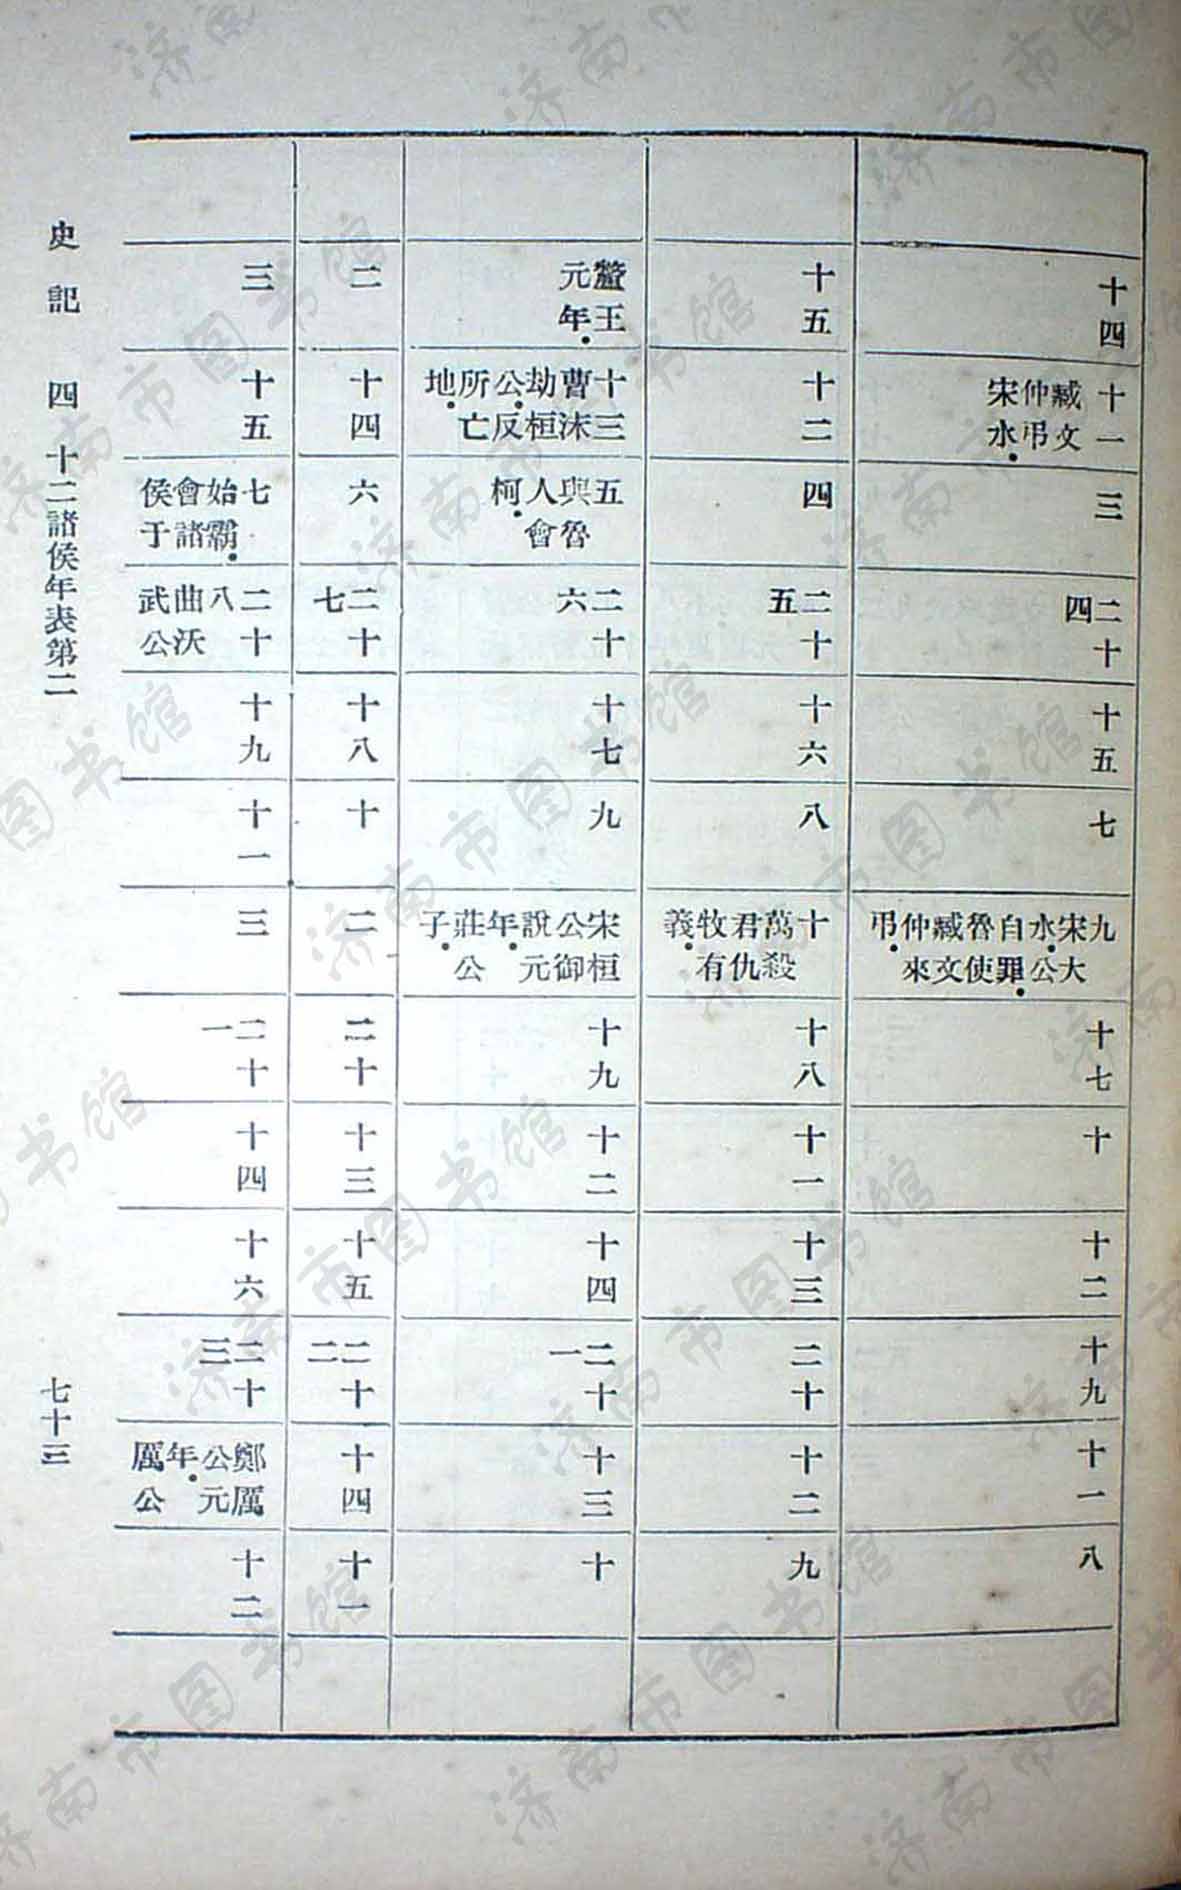 十四
十一 臧文仲弔宋水
三
二十四
十五
七
九 宋大水公自罪魯使臧文仲來弔
十七
十
十二
十九
十一
八
十五
十二
四
二十五
十六
八
十 萬殺君仇牧有義
十八
十一
十三
二十
十二
九
釐王元年
十三 曹沫劫桓公反所亡地
五 與魯人會柯
二十六
十七
九
宋桓公御說元年 莊公子
十九
十二
十四
二十一
十三
十
二
十四
六
二十七
十八
十
二
二十
十三
十五
二十二
十四
十一
三
十五
七 始霸會諸侯于
二十八 曲沃武公
十九
十一
三
二十一
十四
十六
二十三
鄭厲公元年 厲公
十二
史記 四 十二諸侯年表第二
七十三
济南市图书馆